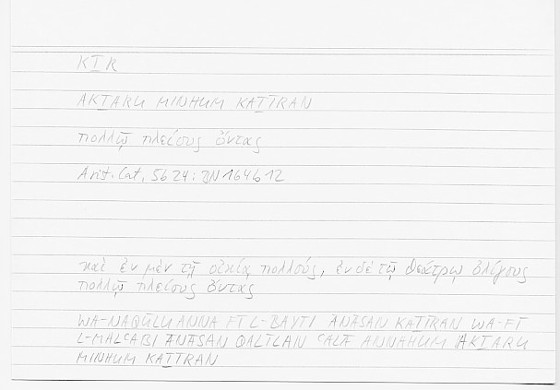 KṮR
AKṮARU MINHUM KAṮĪRAN
πολλῷ πλείους ὄντας
Arist. Cat. 5b24: ZN 164b12
καὶ ἐν μὲν τῇ οἰκίᾳ πολλούς, ἐν δὲ τῷ θεάτρῳ ὀλίγους
πολλῷ πλείους ὄντας
WA-NAQŪLU ANNA FĪ L-BAYTI ANĀSAN KAṮĪRAN WA-FĪ
L-MALʿABI ANĀSAN QALĪLAN ʿALĀ ANNAHUM AKṮARU
MINHUM KAṮĪRAN